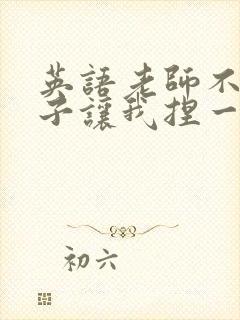 英語老師不
子讓我捏一
初六